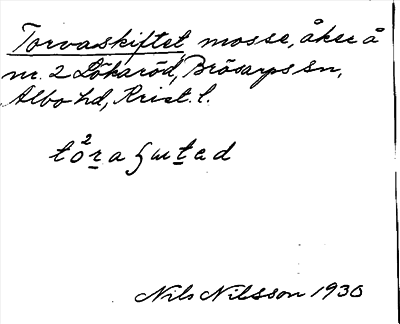 Torvaskiftet, mosse, åker å
nr. 2 Lökaröd, Brösarps sn,
Albo hd, Krist. l.
Nils Nilsson 1930